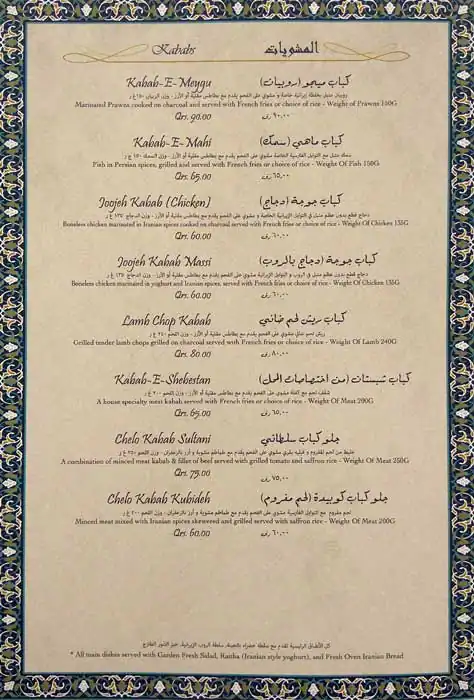 Kababs المشويات
Kabab-E-Meygu كباب ميجو (روبيات)
روبيان متبل بخلطة إيرانية خاصة و مشوي على الفحم يقدم مع بطاطس مقلية أو الأرز - وزن الربيان ١٥٠ غ ر
Marinated Prawns cooked on charcoal and served with French fries or choice of rice - Weight of Prawns 150G
Qrs. 90.00 ٩٠,٠٠ رق
Kabab-E-Mahi كباب ماهي (سمك)
سمك متبل مع التوابل الفارسية الخاصة مشوي على الفحم يقدم مع بطاطس مقلية أو الأرز - وزن السمك ١٥٠ غ ر
Fish in Persian spices, grilled and served with French fries or choice of rice - Weight Of Fish 150G
Qrs. 65.00 ٦٥,٠٠ رق
Joojeh Kabab (Chicken) كباب جوجة (دجاج)
دجاج قطع بدون عظم متبل في التوابل الإيرانية الخاصة و مشوي على الفحم يقدم مع بطاطس مقلية أو الأرز - وزن الدجاج ١٣٥ غ ر
Boneless chicken marinated in Iranian spices cooked on charcoal served with French fries or choice of rice - Weight Of Chicken 135G
Qrs. 60.00 ٦٠,٠٠ رق
Joojeh Kabab Massi كباب جوجة (دجاج بالروب)
دجاج قطع بدون عظم متبل في الروب و التوابل الإيرانية يقدم مع بطاطس مقلية أو الأرز - وزن الدجاج ١٣٥ غ ر
Boneless chicken marinated in yoghurt and Iranian spices, served with French fries or choice of rice - Weight Of Chicken 135G
Qrs. 60.00 ٦٠,٠٠ رق
Lamb Chop Kabab كباب ريش لحم ضاني
ريش لحم ضاني مشوي على الفحم يقدم مع بطاطس مقلية أو الأرز - وزن اللحم ٢٤٠ غ ر
Grilled tender lamb chops grilled on charcoal served with French fries or choice of rice - Weight Of Lamb 240G
Qrs. 80.00 ٨٠,٠٠ رق
Kabab-E-Shebestan كباب شبستان (من اختصاصات المحل)
شقف لحم مع كفتة مشوي على الفحم يقدم مع بطاطس مقلية أو الأرز - وزن اللحم ٢٠٠ غ ر
A house specialty meat kabab served with French fries or choice of rice - Weight Of Meat 200G
Qrs. 65.00 ٦٥,٠٠ رق
Chelo Kabab Sultani جلو كباب سلطاني
خليط من لحم المفروم و فيليه بقري مشوي على الفحم يقدم مع طماطم مشوية و أرز بالزعفران - وزن اللحم ٢٥٠ غ ر
A combination of minced meat kabab & fillet of beef served with grilled tomato and saffron rice - Weight Of Meat 250G
Qrs. 75.00 ٧٥,٠٠ رق
Chelo Kabab Kubideh جلو كباب كوبيدة (لحم مفروم)
لحم مفروم مع التوابل الفارسية مشوي على الفحم يقدم مع طماطم مشوية و أرز بالزعفران - وزن اللحم ٢٠٠ غ ر
Minced meat mixed with Iranian spices skewered and grilled served with saffron rice - Weight Of Meat 200G
Qrs. 60.00 ٦٠,٠٠ رق
كل الأطباق الرئيسية تقدم مع سلطة خضراء بالجبنة، سلطة الروب الإيرانية، خبز التنور الطازج
* All main dishes served with Garden Fresh Salad, Raitha (Iranian style yoghurt), and Fresh Oven Iranian Bread